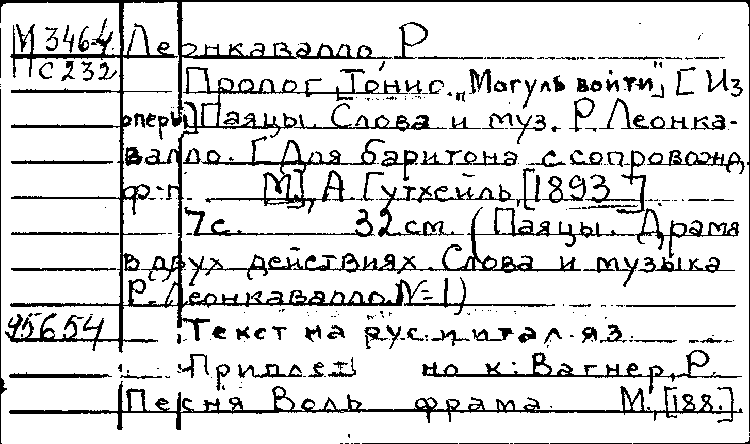 М 346-4 Леонкавалло, Р
ПС232 Пролог Тонио. „Могуль войти", [Из
оперы] Паяцы. Слова и муз. Р. Леонка-
валло. [Для баритона с сопровожд.
ф-п М], А Гутхейль, [1893]
7с. 32 см. (Паяцы. Драма
в двух действиях. Слова и музыка
Р. Леонкавалло. N=1)
95654 Текст на рус. и итал. яз.
Приплет но к: Вагнер, Р.
Песня Воль фрама М., [188.].